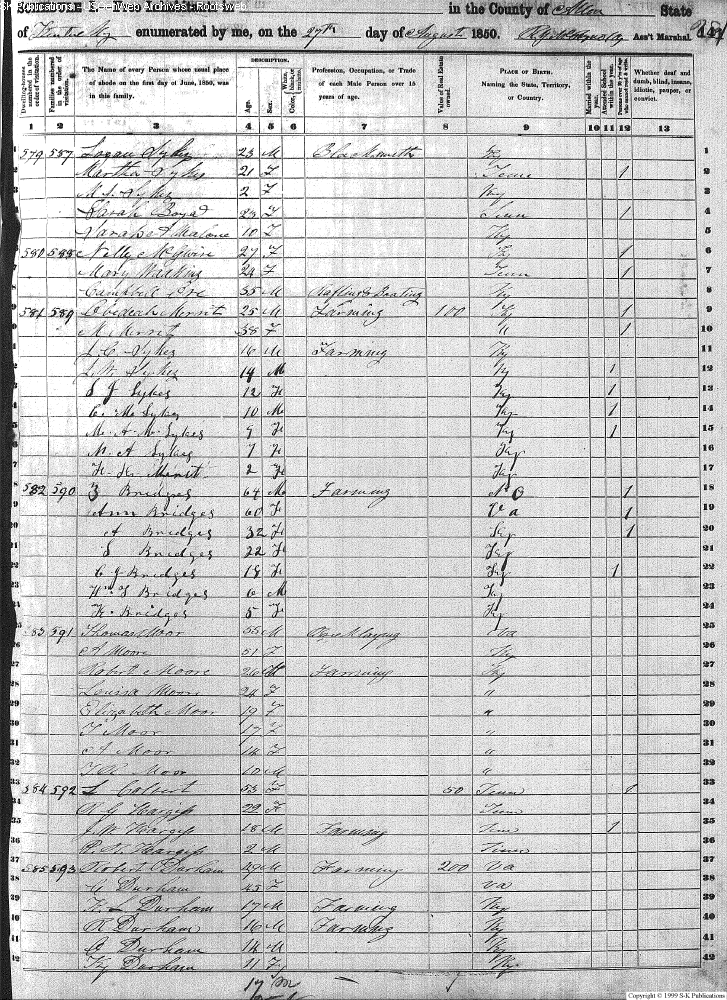 in the County of Allen State
of Kentucky enumerated by me, on the 27th day of August 1850. Ass't Marshal.
Dwelling-houses numbered in the order of visitation.
Families numbered in the order of visitation.
The Name of every Person whose usual place of abode on the first day of June, 1850, was in this family.
DESCRIPTION.
Age.
Sex.
White, black, or mulatto.
Color,
Profession, Occupation, or Trade of each Male Person over 15 years of age.
Value of Real Estate owned.
PLACE OF BIRTH. Naming the State, Territory, or Country.
Married within the year.
Attended School within the year.
Persons over 20 y'rs of age who cannot read & write.
Whether deaf and dumb, blind, insane, idiotic, pauper, or convict.
1 2 3 4 5 6 7 8 9 10 11 12 13
579 587 Logan Sykes 23 M Blacksmith Ky 1
Martha Sykes 21 F Tenn 1 2
M Sykes 2 F Ky 3
Sarah Boyd 23 F Tenn 1 4
Sarah Malone 10 F Ky 5
580 588 Nelly McGwire 27 F Ky 1 6
Mary Watkins 24 F Tenn 1 7
Campbell 35 M Rafting & Boating Ky 8
581 589 Obediah Merrit 25 M Farming 100 Ky 1 9
M Merrit 38 F " 1 10
J. C. Sykes 16 M Farming Ky 11
J. W. Sykes 14 M Ky 1 12
S J Sykes 12 F Ky 1 13
C. M. Sykes 10 M Ky 1 14
M. A. M. Sykes 9 F Ky 1 15
M. A Sykes 7 F Ky 16
Merit 2 F Ky 17
582 590 Z Bridges 64 M Farming N C 1 18
Ann Bridges 60 F Va 1 19
A Bridges 32 F Ky 1 20
S Bridges 22 F Ky 21
C J Bridges 18 F Ky 1 22
Bridges 6 M Ky 23
Bridges 5 F Ky 24
583 591 Thomas Moor 55 M Va 25
A Moore 51 F Ky 26
Robert Moore 26 M Farming Ky 27
Louisa Moor 24 F " 28
Elizabeth Moor 19 F " 29
Moor 17 F " 30
A Moor 14 F " 31
Moor 10 M " 32
584 592 S Calvert 53 F 50 Tenn 1 33
Hargis 22 F Tenn 34
J. W Hargis 18 M Farming Tenn 1 35
Hargis 2 M Tenn 36
585 593 Robert Durham 49 M Farming 200 Va 37
Durham 45 F Va 38
Durham 17 M Farming Ky 39
R Durham 16 M Farming Ky 40
Durham 14 M Ky 41
Durham 11 F Ky 42
17 M
Copyright © 1999 S-K Publications